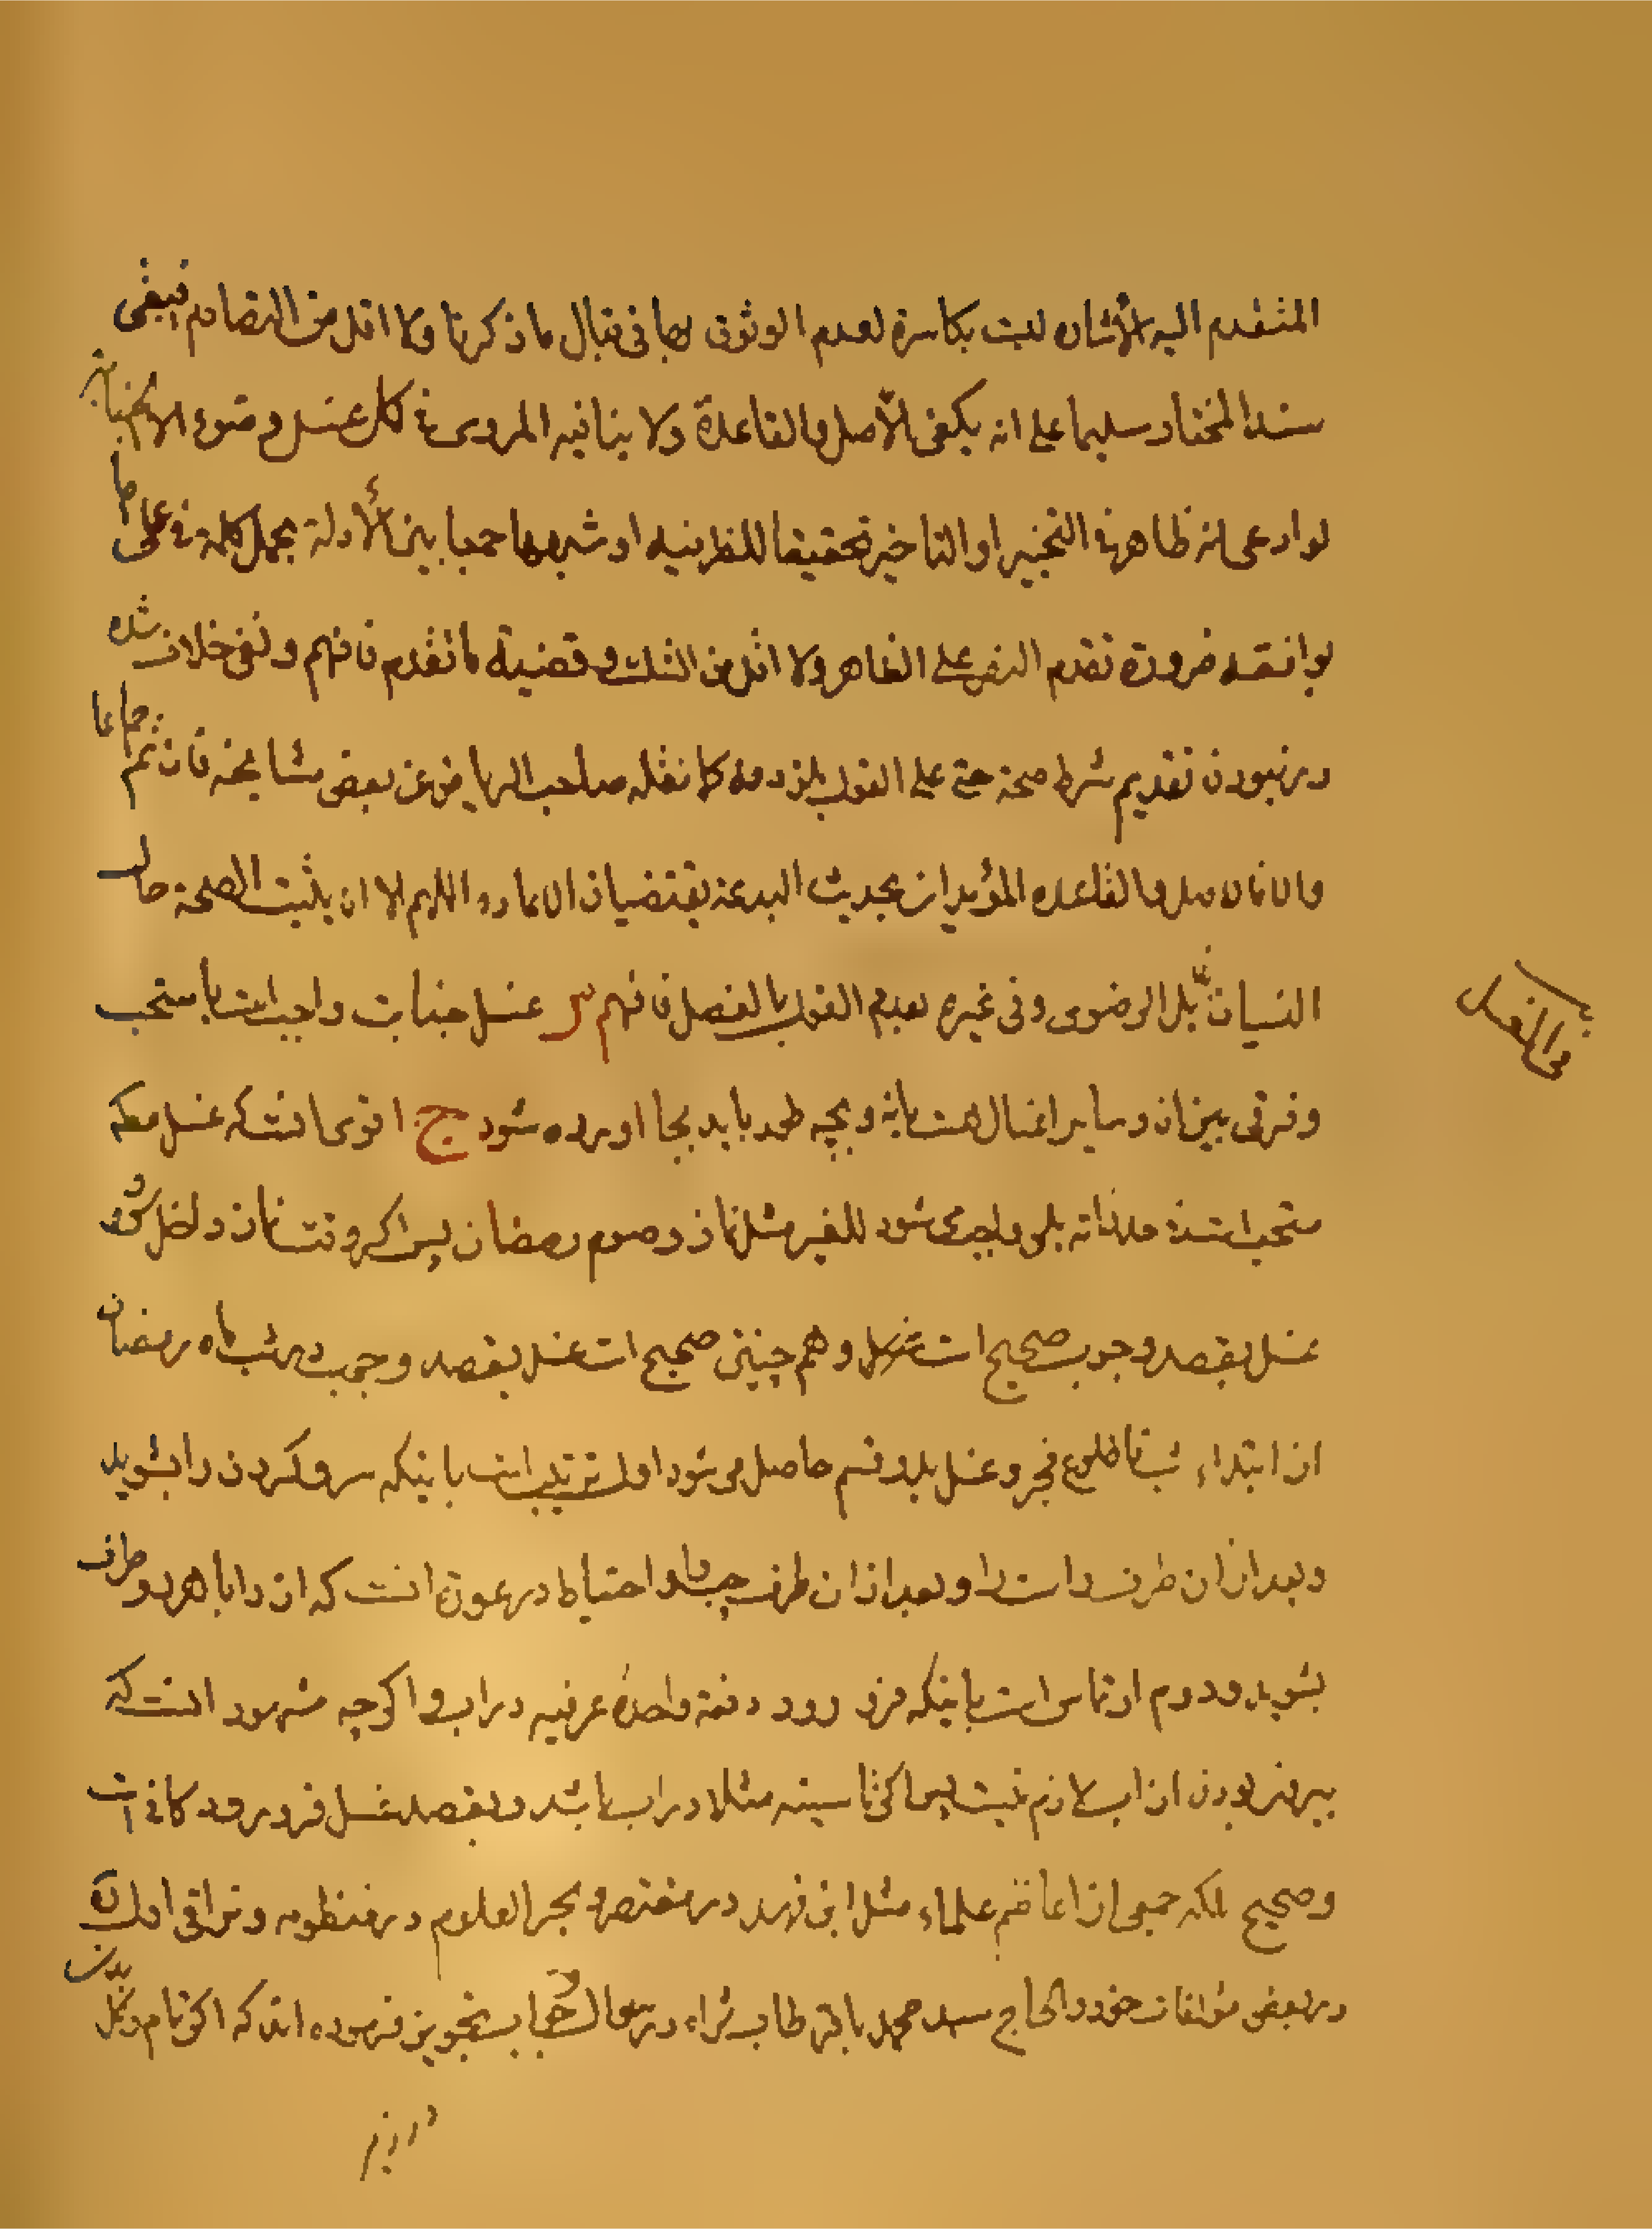 المتقدم اليه الأشارة ليست بكاسرة لعدم الوثوق بها في قبال ما ذكرنا ولا اقل من التصادم فيبقى
سند المختار سليما على انه يكفى الأصل والقاعدة ولا ينافيه المروى في كل غسل وضوء الا الجنابة
لو ادعى انه ظاهر في التخيير او التاخير تحقيقا للظرفيه او شبهها جمعا بين الأدلة بحمل كلمة في على ما
يوافقه ضرورة تقدم النص على الظاهر ولا اقل من الشك وقضية ما تقدم فافهم ونفى خلاف شده
در نبودن تقديم شرط صحة حتى على القول بلزومه كما نقله صاحب الرياض عن بعض مشايخه فان تم اجماعا
والا فالاصل والقاعده المؤيدان بحديث البدعة يقتضيان الاعاده اللهم الا ان يثبت الصحة حال
النسيان بالرضوى وفى غيره بعدم القول بالفصل فافهم س غسل جنابت واجب است يا مستحب
و فرقى بين ان و ساير اغسال هست يا نه و بچه طور بايد بجا اورده شود ج اقوى انست كه غسل
مستحب است في حد ذاته بلى واجب مى شود للغير مثل نماز و صوم رمضان پس اگر وقت نماز داخل شود
غسل بقصد وجوب صحيح است و هم چنين صحيح است غسل بقصد وجوب در شب ماه رمضان
از ابتداء شب تا طلوع فجر و غسل بدو قسم حاصل مى شود اول ترتيب است باينكه سر و گردن را بشويد
و بعد از ان طرف راست را و بعد از ان طرف چپ را و احتياط در عورة انست كه ان را با هر دو طرف
بشويد و دوم ارتماس است باينكه فرو رود دفعة واحدة عرفيه در اب و اگر چه مشهور انست كه
بيرون بودن از اب لازم نيست پس اگر تا سينه مثلا در اب باشد و بقصد غسل فرو رود كافى است
و صحيح بلكه جمعى از اعاظم علماء مثل ابن فهد در مقتصر و بحر العلوم در منظومه و نراقى اول
در بعض مؤلفات خود و الحاج سيد محمد باقر طاب ثراه در سؤال و جواب تجويز فرموده اند كه اگر تمام بدن
در زير
في الغسل